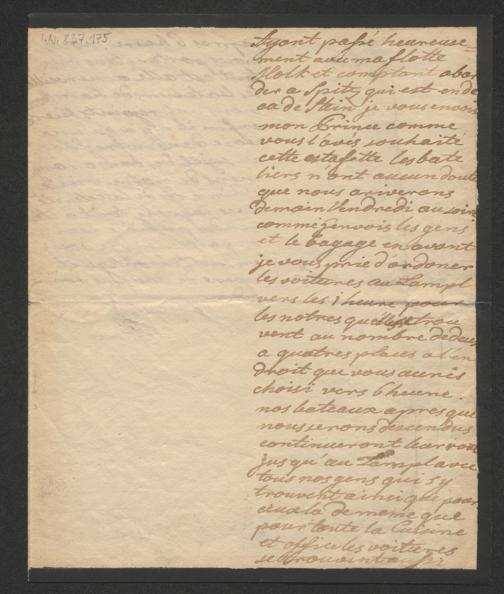 I.N. 837.175
Ayant passé heureuse=
ment avec ma flotte
Molk et comptant abor
der a Spitz qui est en de
ca de Stein je vous envois
mon Prince comme
vous l'avés souhaité
cette estafette les bate
liers n'ont aucun doute
que nous ariverons
demain Vendredi au soir
comme j'envois les gens
et le bagage en avant
je vous prie d'ordoner
les voitures au Lampl
vers les 1 heure pour
les notres qu'elles se trou
vent au nombre de deux
a quatres places a l'en
droit que vous aurés
choisi vers 6 heure.
nos bateaux apres que
nous serons descendus
continueront leur route
jus qu'au Lampl avec
tous nos gens qui s'y
trouvent ainsi que pour
ceux la de meme que
pour toute la Cuisine
et office les voitures
se trouvent